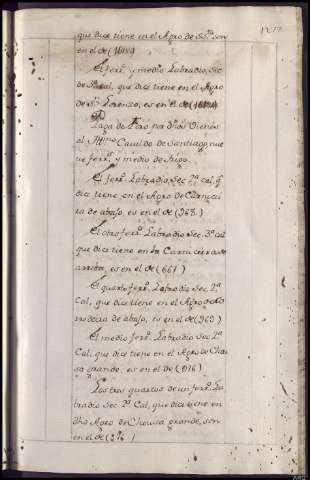 que dice tiene en el Agro de Sn. son
en el de
El ferr.o y medio Labradio, Sec
de 3.a Cal, que dice tiene en el Agro
de Sn. Lorenzo, es en el de
Paga de Foro por dhos Vienes
al Ittmo Cavildo de Santiago, nue
ve ferr.s y medio de trigo.
El ferr.o Labradio, Sec.o 2.a Cal, q.e
dice tiene en el Agro de Carnicei
ra de abajo, es en el de (968.)
El otro ferr.o Labradio Sec.o 3.a Cal
que dice tiene en la Carniceira de
arriba, es en el de (661)
El quarto ferr.o Labradio Sec.o 2.a
Cal, que dice tiene en el Agro
de abajo, es en el de (969)
El medio ferr.o Labradio Sec.o 2.a
Cal, que dice tiene en el Agro de Chou
sa grande, es en el de (976)
Los tres quartos de un ferr.o La
bradio Sec.o 2.a Cal, que dice tiene en
dho Agro de Chousa grande, son
en el de (976)